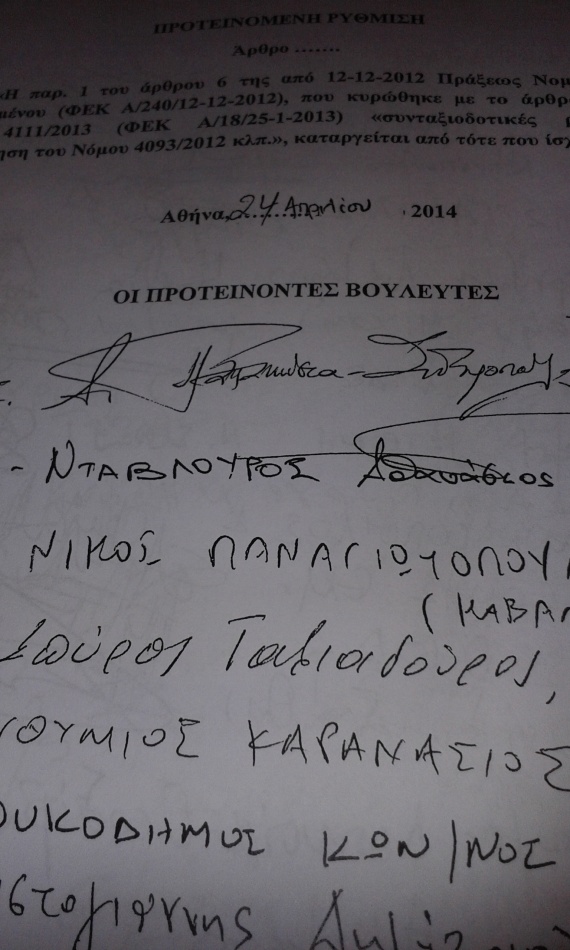 ΠΡΟΤΕΙΝΟΜΕΝΗ ΡΥΘΜΙΣΗ
Άρθρο .......
«Η παρ. 1 του άρθρου 6 της από 12-12-2012 Πράξεως Νομ
μένου (ΦΕΚ Α/240/12-12-2012), που κυρώθηκε με το άρθρ
4111/2013 (ΦΕΚ Α/18/25-1-2013) «συνταξιοδοτικές
ηση του Νόμου 4093/2012 κλπ.», καταργείται από τότε που ίσχ
Αθήνα, 24 Απριλίου 2014
ΟΙ ΠΡΟΤΕΙΝΟΝΤΕΣ ΒΟΥΛΕΥΤΕΣ
- ΝΤΑΒΛΟΥΡΟΣ Αθανάσιος
ΝΙΚΟΣ ΠΑΝΑΓΙΩΤΟΠΟΥΛ
(ΚΑΒΑΛ
Σπύρος Ταλιαδούρος,
ΘΥΜΙΟΣ ΚΑΡΑΝΑΣΙΟΣ
ΟΥΚΟΔΗΜΟΣ ΚΩΝ/ΝΟΣ
στογιάννης